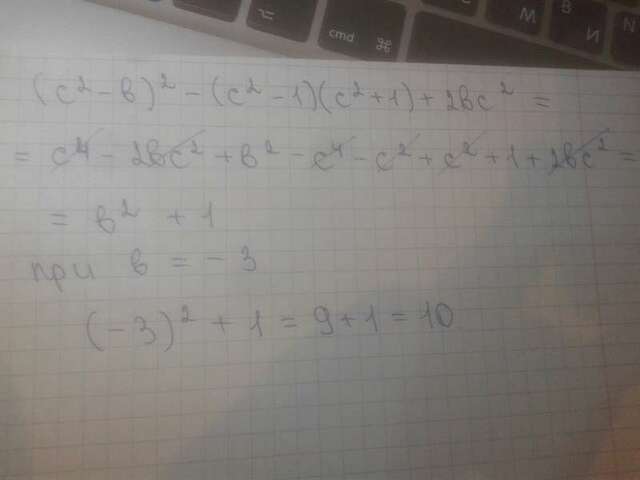 cmd ⌘ М В И N
(c² - в)² - (c² - 1)(c² + 1) + 2вc² =
= c⁴ - 2вc² + в² - c⁴ - c² + c² + 1 + 2вc² =
= в² + 1
при в = -3
(-3)² + 1 = 9 + 1 = 10